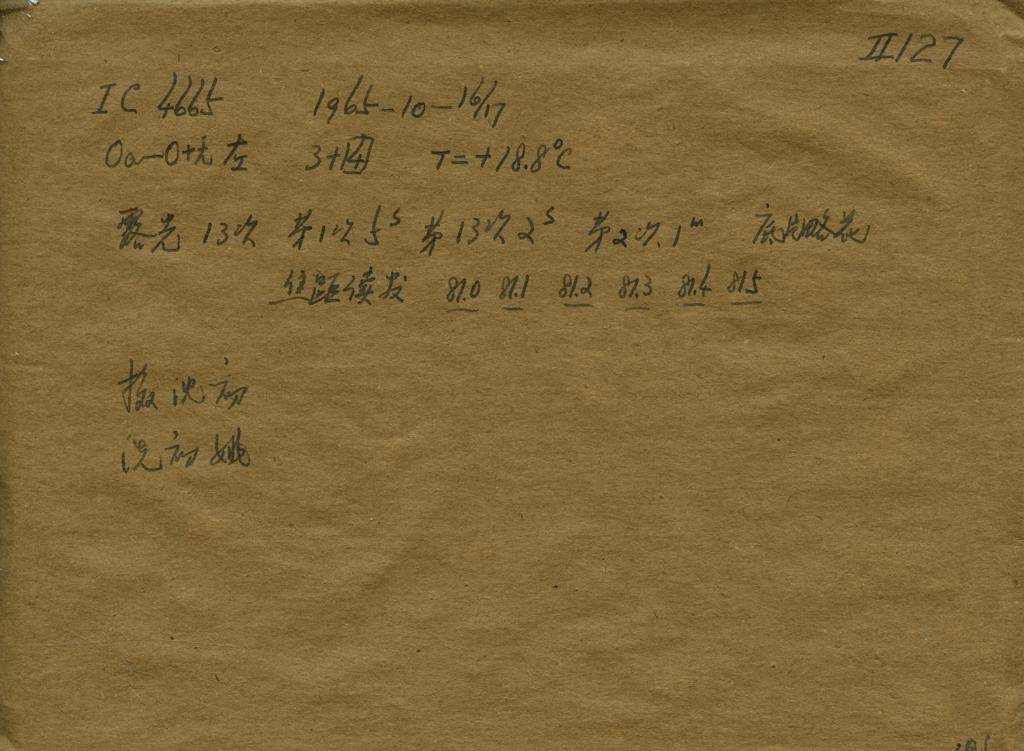 II127
IC 4665 1965-10-16/17
Oa-O+无左 3+四 T=+18.8°C
露光13次 第1次5s 第13次2s 第2次.1m 底片略花
焦距读数 81.0 81.1 81.2 81.3 81.4 81.5
摄沈初
洗初姚